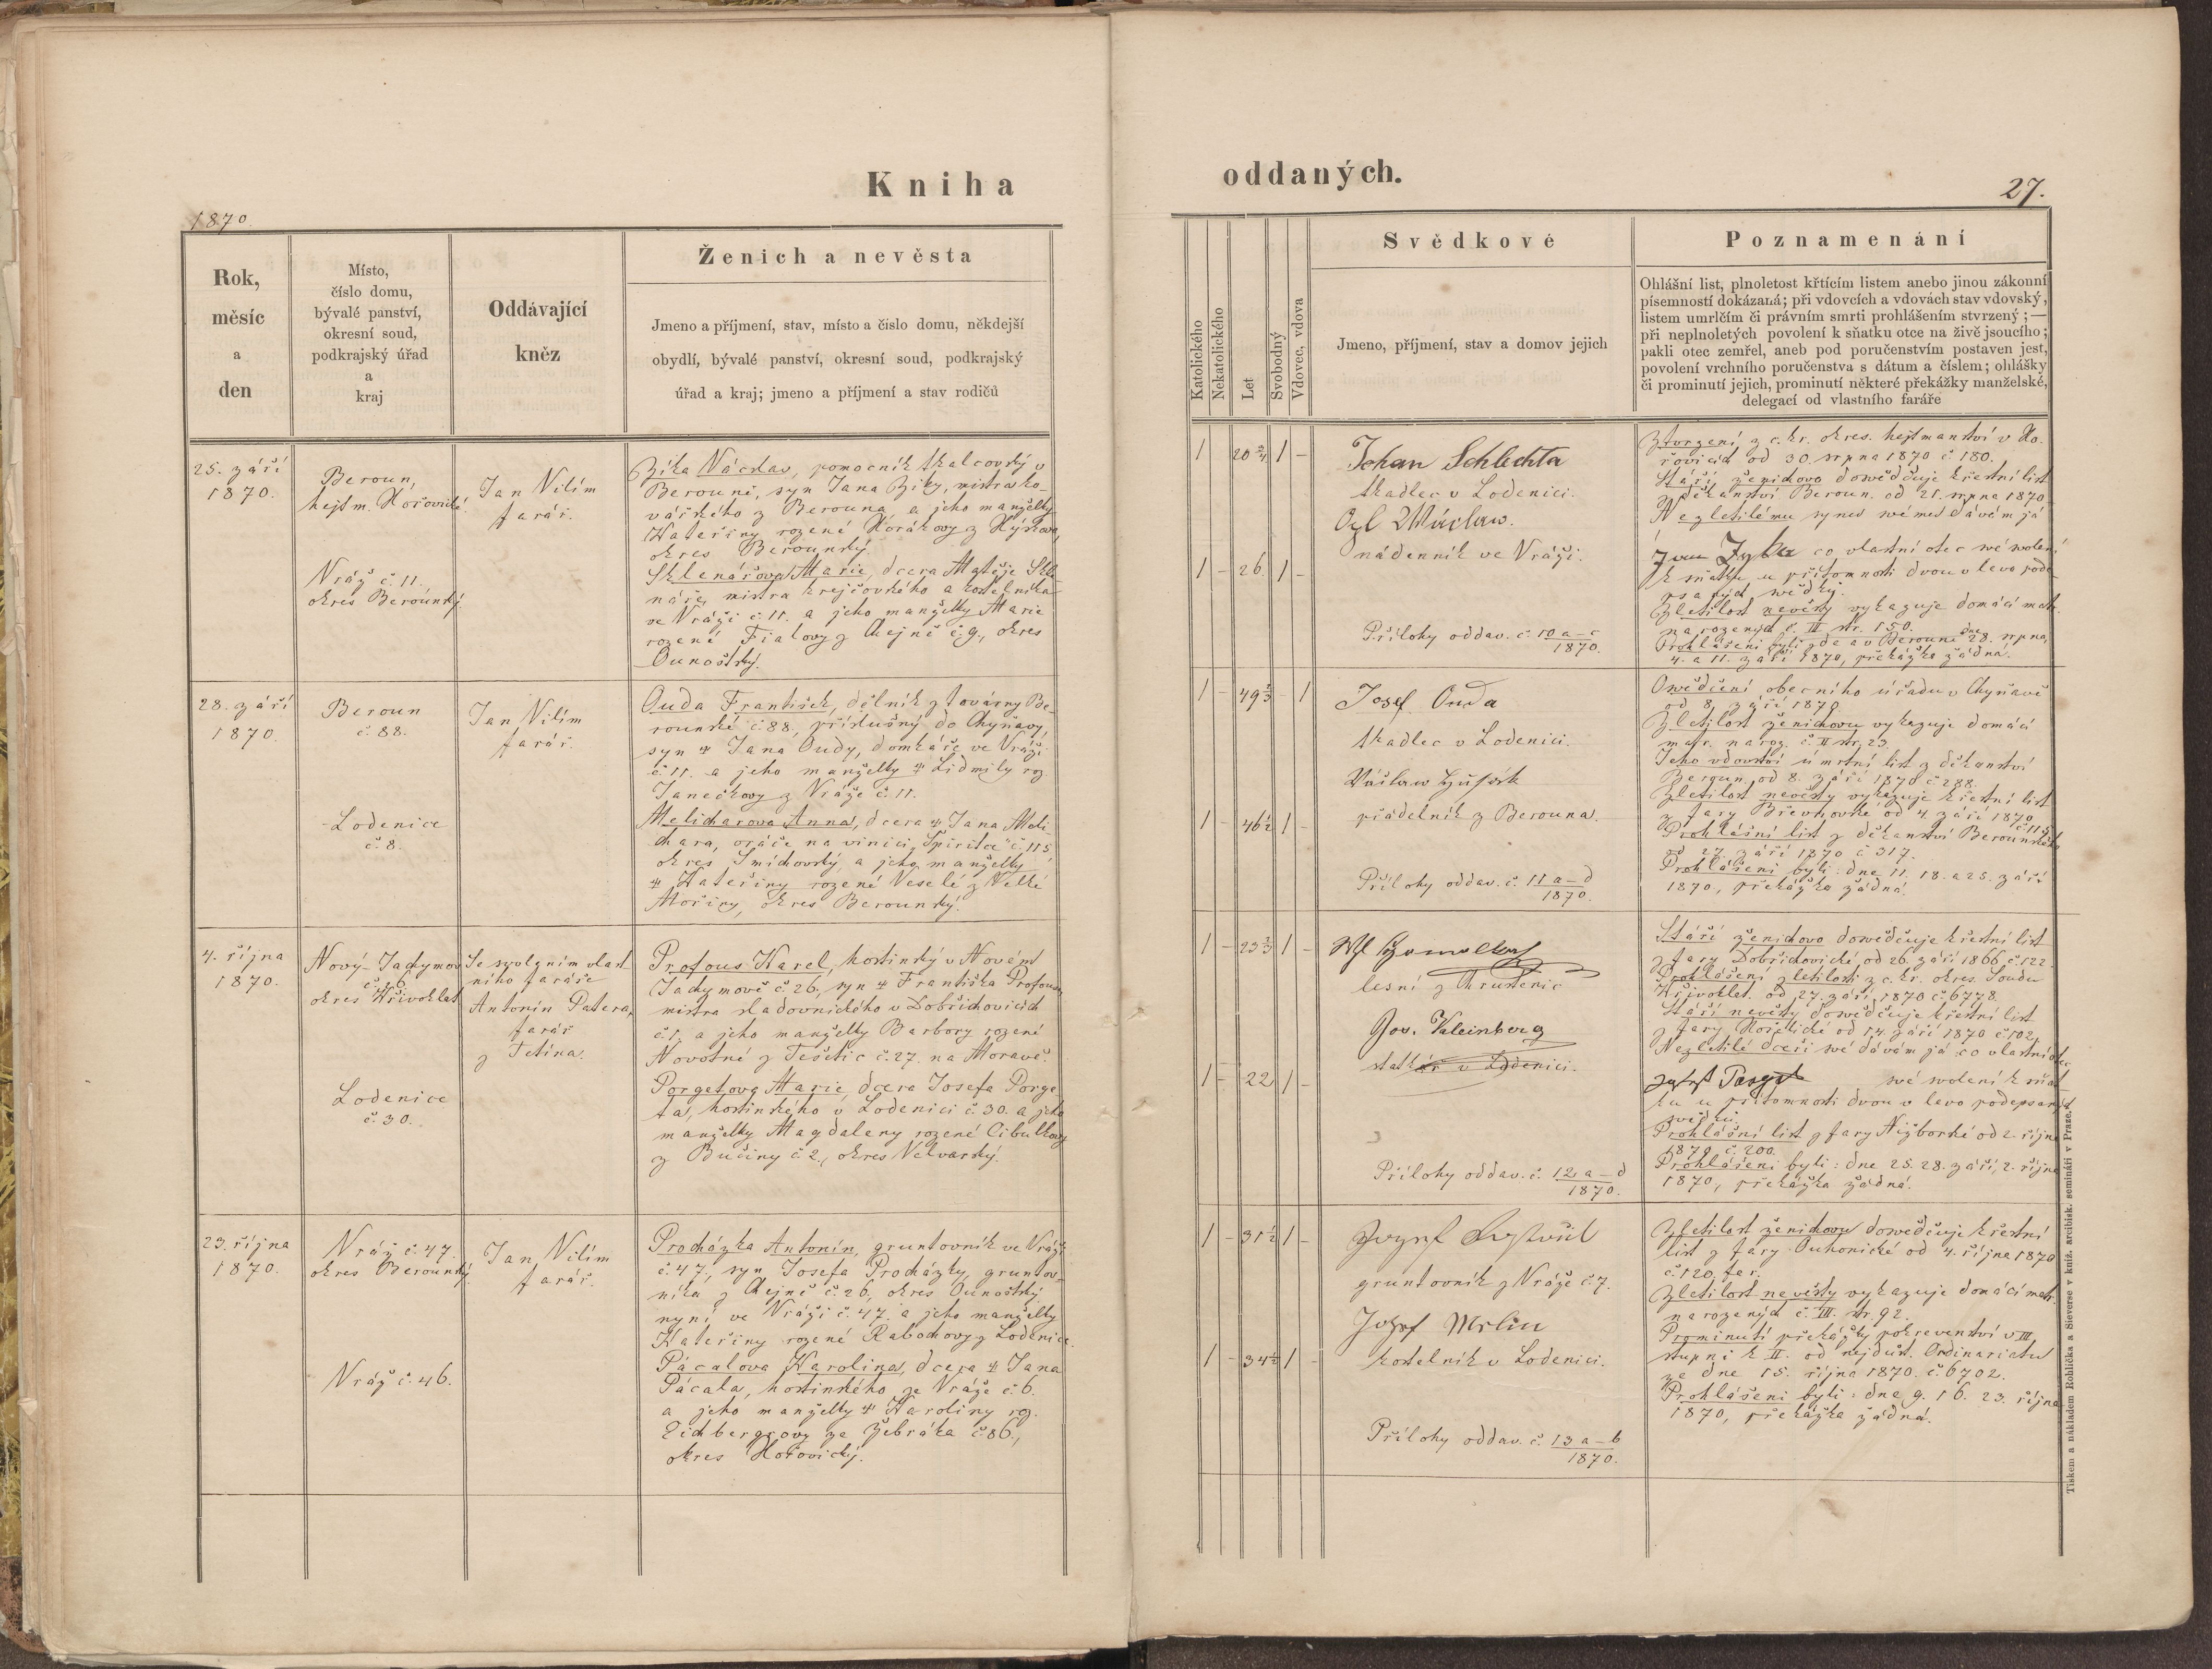 Kniha
1870.
Rok,
měsíc
a
den
Místo,
číslo domu,
bývalé panství,
okresní soud,
podkrajský úřad
a
kraj
Oddávající
kněz
Ženich a nevěsta
Jmeno a příjmení, stav, místo a číslo domu, někdejší
obydlí, bývalé panství, okresní soud, podkrajský
úřad a kraj; jmeno a příjmení a stav rodičů
25. září
1870.
Beroun,
hejtm. Hořovické
Vráž č. 11.
okres Berounský.
Jan Vilím
farář.
Zíka Václav, pomocník tkalcovský v
Berouně, syn Jana Zíky, mistra ko-
vářského z Berouna a jeho manželky
Kateřiny rozené Horákovy z Hýskova,
okres Berounský.
Sklenářova Marie, dcera Matěje Skle-
náře, mistra krejčovského a kostelníka
ve Vráži č. 11. a jeho manželky Marie
rozené Fialovy z Chejně č. 9., okres
Ounošťský.
28. září
1870.
Beroun
č. 88.
Lodenice
č. 8.
Jan Vilím
farář.
Ouda František, dělník z továrny Be-
rounské č. 88, příslušný do Chyňavy,
syn ✝ Jana Oudy, domkáře ve Vráži
č. 11. a jeho manželky ✝ Lidmily roz.
Janečkovy z Vráže č. 11.
Melicharova Anna, dcera ✝ Jana Meli-
chara, oráče na vinici „Špiritce" č. 115
okres Smíchovský, a jeho manželky
✝ Kateřiny rozené Veselé z Velké
Mořiny, okres Berounský.
4. října
1870.
Nový-Jachymov
č. 26
okres Křivoklát
Lodenice
č. 30.
Se svolením vlast
ního faráře
Antonín Patera,
farář
z Tetína.
Profous Karel, hostinský v Novém
Jachymově č. 26, syn ✝ Františka Profousa
mistra sladovnického v Dobřichovicích
č. 1. a jeho manželky Barbory rozené
Novotné z Tešetic č. 27. na Moravě.
Porgetova Marie, dcera Josefa Porge-
ta, hostinského v Lodenici č. 30. a jeho
manželky Magdaleny rozené Cibulkovy
z Bučiny č. 2., okres Velvarský.
23. října
1870.
Vráž č. 47.
okres Berounský
Vráž č. 46.
Jan Vilím
farář.
Procházka Antonín, gruntovník ve Vráži
č. 47, syn Josefa Procházky, gruntov-
níka z Chejně č. 26, okres Ounošťský
nyní ve Vráži č. 47. a jeho manželky
Kateřiny rozené Rabochovy z Lodenice.
Pácalova Karolina, dcera ✝ Jana
Pácala, hostinského ze Vráže č. 6.
a jeho manželky ✝ Karoliny roz.
Eichbergrovy ze Žebráka č. 86.,
okres Hořovický.
oddaných.
27.
Katolického
Nekatolického
Let
Svobodný
Vdovec, vdova
Svědkové
Jmeno, příjmení, stav a domov jejich
Poznamenání
Ohlášní list, plnoletost křtícím listem anebo jinou zákonní
písemností dokázaná; při vdovcích a vdovách stav vdovský,
listem umrlčím či právním smrti prohlášením stvrzený; —
při neplnoletých povolení k sňatku otce na živě jsoucího;
pakli otec zemřel, aneb pod poručenstvím postaven jest,
povolení vrchního poručenstva s dátum a číslem; ohlášky
či prominutí jejich, prominutí některé překážky manželské,
delegací od vlastního faráře
1 20 3/4 1 –
1 – 26. 1 –
Johan Schlechta
tkadlec v Lodenici.
Václaw.
nádenník ve Vráži.
Přílohy oddav. č. 10 a–c
1870.
Ztvrzení z c. kr. okres. hejtmanství v Ho-
řovicích od 30. srpna 1870 č. 180.
Stáří ženichovo dowěďčuje křestní list
z děkanství Beroun. od 21. srpna 1870
Nezletilému synu swému dávám já
co vlastní otec wé wolení
k sňatku u přítomnosti dvou v levo pode-
psaných swědků.
Zletilost nevěsty vykazuje domácí matr.
narozených č. II str. 150.
Prohlášeni byli zde a v Berouně dne 28. srpna,
4. a 11. září 1870, překážka žádná.
1 – 49 1 –
1 – 46 1/2 1 –
Josef Ouda
tkadlec v Lodenici.
přádelník z Berouna.
Přílohy oddav. č. 11 a–d
1870.
Oswědčení obecního úřadu v Chyňavě
od 8. září 1870.
Zletilost ženichovu vykazuje domácí
matr. naroz. č. II str. 23.
Jeho vdovství úmrtní list z děkanství
Beroun. od 8. září 1870 č. 288.
Zletilost nevěsty vykazuje křestní list
z fary Břevnovské od 4. září 1870
č. 115.
Prohlášní list z děkanství Berounského
od 27. září 1870 č. 317.
Prohlášeni byli: dne 11. 18. a 25. září
1870, překážka žádná.
1 – 23 1 –
1 – 22 1 –
lesní z Chrustenic
Jos. Kleinberg
statkář v Lodenici.
Přílohy oddav. č. 12 a–d
1870.
Stáří ženichovo dowěďčuje křestní list
z fary Dobřichovické od 26. září 1866 č. 122.
Prohlášení zletilosti z c. kr. okres. Soudu
Křivoklát. od 27. září 1870 č. 6778.
Stáří nevěsty dowěďčuje křestní list
z fary Hořelické od 14. září 1870 č. 102.
Nezletilé dceři své dávám já co vlastní otec
Porget své wolení k sňat-
ku u přítomnosti dvou v levo podepsaných
swědků.
Prohlášní list z fary Nižborské od 2. října
1870 č. 200.
Prohlášeni byli: dne 25. 28. září, 2. října
1870, překážka žádná.
1 – 31 1/2 1 –
1 – 34 1/2 1 –
gruntovník z Vráže č. 7.
kostelník v Lodenici.
Přílohy oddav. č. 13 a–b
1870.
Zletilost ženichovu dowěďčuje křestní
list z fary Ouhonické od 4. října 1870
č. 120. far.
Zletilost nevěsty vykazuje domácí matr.
narozených č. III. str. 92.
Prominutí překážky pokrevenství v III.
stupni k II. od nejdůst. Ordinariatu
ze dne 15. října 1870. č. 6702.
Prohlášeni byli: dne 9. 16. 23. října
1870, překážka žádná.
Tiskem a nákladem Rohlíčka a Sieverse v kníž. arcibisk. semináři v Praze.